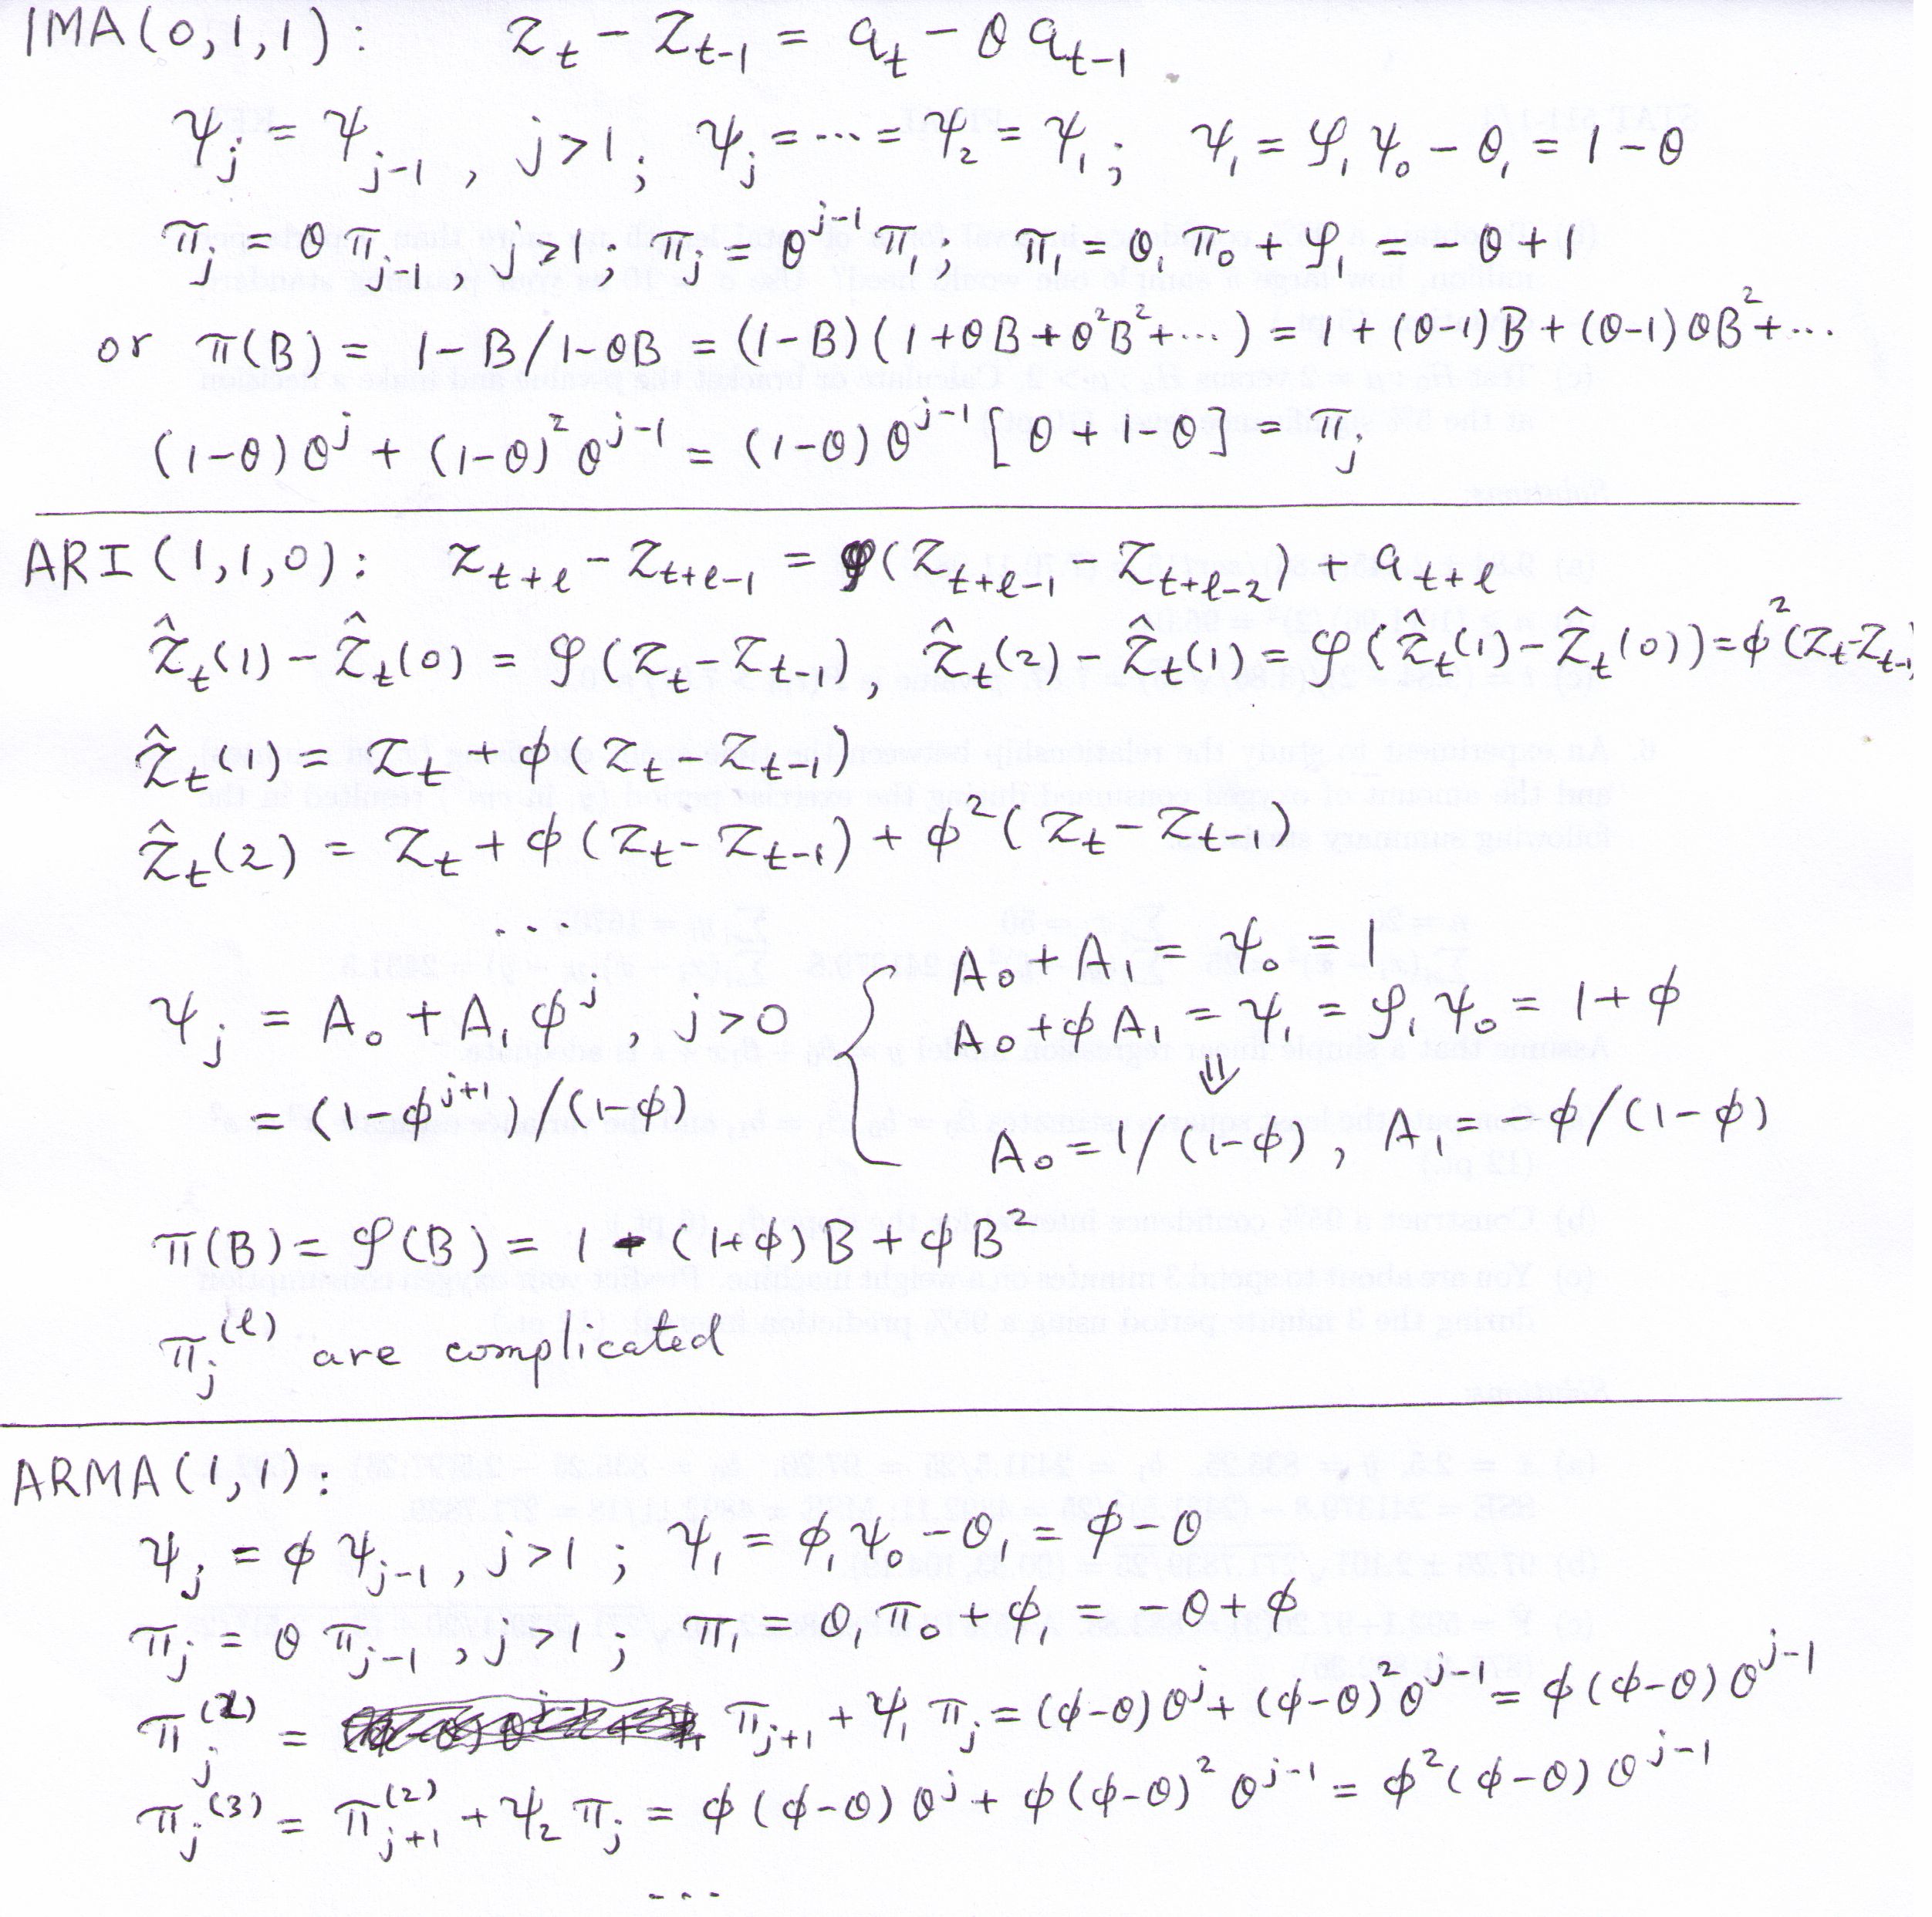 IMA(0,1,1): Z_t − Z_{t-1} = a_t − θ a_{t-1}
ψ_j = ψ_{j-1}, j>1; ψ_j = ··· = ψ_2 = ψ_1; ψ_1 = φ_1 ψ_0 − θ_1 = 1 − θ
π_j = θ π_{j-1}, j>1; π_j = θ^{j-1} π_1; π_1 = θ_1 π_0 + φ_1 = −θ + 1
or π(B) = 1−B/1−θB = (1−B)(1+θB+θ²B²+···) = 1+(θ−1)B+(θ−1)θB²+···
(1−θ)θ^j + (1−θ)²θ^{j-1} = (1−θ)θ^{j-1}[θ+1−θ] = π_j
ARI(1,1,0): Z_{t+ℓ} − Z_{t+ℓ-1} = φ(Z_{t+ℓ-1} − Z_{t+ℓ-2}) + a_{t+ℓ}
Ẑ_t(1) − Ẑ_t(0) = φ(Z_t − Z_{t-1}), Ẑ_t(2) − Ẑ_t(1) = φ(Ẑ_t(1) − Ẑ_t(0)) = ϕ²(Z_t−Z_{t-1})
Ẑ_t(1) = Z_t + ϕ(Z_t − Z_{t-1})
Ẑ_t(2) = Z_t + ϕ(Z_t − Z_{t-1}) + ϕ²(Z_t − Z_{t-1})
···
A_0 + A_1 = ψ_0 = 1
ψ_j = A_0 + A_1 ϕ^j, j>0 { A_0 + ϕA_1 = ψ_1 = φ_1 ψ_0 = 1+ϕ
⇓
= (1−ϕ^{j+1})/(1−ϕ) A_0 = 1/(1−ϕ), A_1 = ϕ/(1−ϕ)
π(B) = φ(B) = 1 − (1+ϕ)B + ϕB²
π_j^{(ℓ)} are complicated
ARMA(1,1):
ψ_j = ϕ ψ_{j-1}, j>1; ψ_1 = ϕ_1 ψ_0 − θ_1 = ϕ−θ
π_j = θ π_{j-1}, j>1; π_1 = θ_1 π_0 + ϕ_1 = −θ+ϕ
π_j^{(2)} = π_{j+1} + ψ_1 π_j = (ϕ−θ)θ^j + (ϕ−θ)²θ^{j-1} = ϕ(ϕ−θ)θ^{j-1}
π_j^{(3)} = π_{j+1}^{(2)} + ψ_2 π_j = ϕ(ϕ−θ)θ^j + ϕ(ϕ−θ)²θ^{j-1} = ϕ²(ϕ−θ)θ^{j-1}
···